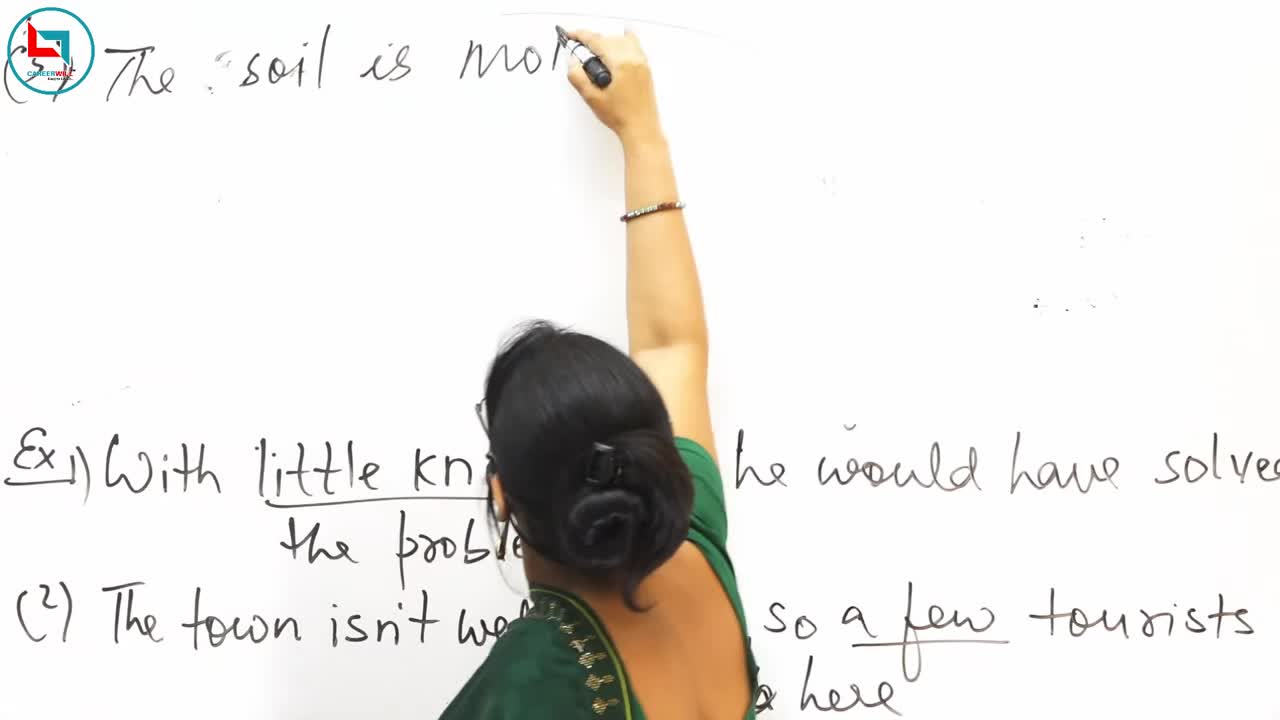 CAREERWILL
(3) The soil is mo
Ex 1) With little kn he would have solve
the proble
(2) The town isn't we , so a few tourists
here